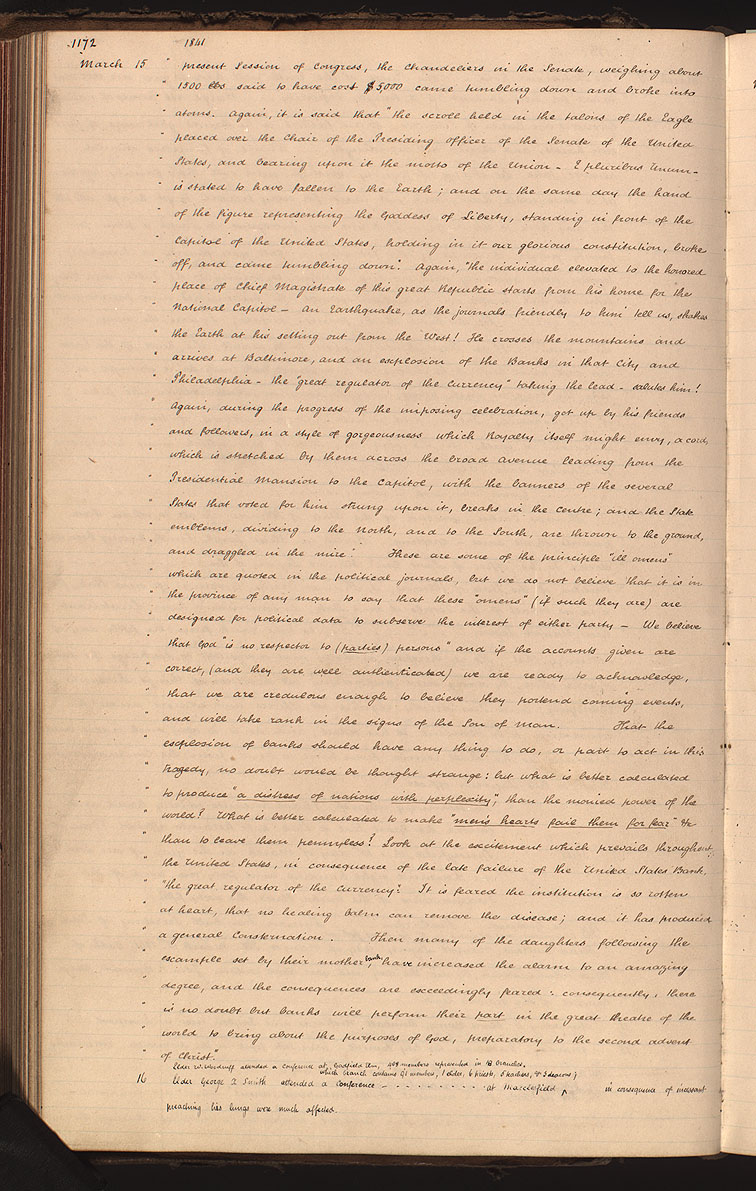 1172 1841
March 15 " present Session of Congress, the chandeliers in the Senate, weighing about
" 1500 lbs said to have cost $5,000 came tumbling down and broke into
" atoms. Again, it is said that "the scroll held in the talons of the Eagle
" placed over the Chair of the Presiding officer of the Senate of the United
" States, and bearing upon it the motto of the Union - E pluribus Unum -
" is stated to have fallen to the Earth; and on the same day the hand
" of the figure representing the Goddess of Liberty, standing in front of the
" Capitol of the United States, holding in it our glorious constitution, broke
" off, and came tumbling down". Again, "the individual elevated to the honored
" place of Chief Magistrate of this great Republic starts from his home for the
" National Capitol - an Earthquake, as the journals friendly to him tell us, shakes
" the Earth at his setting out from the West! He crosses the mountains and
" arrives at Baltimore, and an explosion of the Banks in that City and
" Philadelphia - the "great regulator of the currency" taking the lead - salutes him!
" Again, during the progress of the imposing celebration, got up by his friends
" and followers, in a style of gorgeousness which Royalty itself might envy, a cord,
" which is stretched by them across the broad avenue leading from the
" Presidential Mansion to the Capitol, with the banners of the several
" States that voted for him strung upon it, breaks in the centre; and the State
" emblems, dividing to the North, and to the South, are thrown to the ground,
" and draggled in the mire". These are some of the principle "ill omens"
" which are quoted in the political journals, but we do not believe that it is in
" the province of any man to say that these "omens" (if such they are) are
" designed for political data to subserve the interest of either party - We believe
" that God "is no respector to (parties) persons" and if the accounts given are
" correct, (and they are well authenticated) we are ready to acknowledge,
" that we are credulous enough to believe they portend coming events,
" and will take rank in the signs of the Son of Man. That the
" explosion of banks should have any thing to do, or part to act in this
" tragedy, no doubt would be thought strange: but what is better calculated
" to produce "a distress of nations with perplexity", than the monied power of the
" world? What is better calculated to make "men's hearts fail them for fear" &c
" than to leave them pennyless? Look at the excitement which prevails throughout
" the United States, in consequence of the late failure of the United States Bank,
" "the great regulator of the currency". It is feared the institution is so rotten
" at heart, that no healing balm can remove the disease; and it has produced
" a general Consternation. Then many of the daughters following the
" example set by their mother bank, have increased the alarm to an amazing
" degree, and the consequences are exceedingly feared: consequently, there
" is no doubt but banks will perform their part in the great theatre of the
" world to bring about the purposes of God, preparatory to the second advent
" of Christ".
Elder W. Woodruff attended a conference at Gadfield Elm, 408 members represented in 18 branches.
which branch contains 91 members, 1 elder, 6 priests, 5 teachers, & 3 deacons;
16 Elder George A Smith attended a conference - - - - - - - - - - at Macclesfield ^ in consequence of incessant
preaching his lungs were much affected.